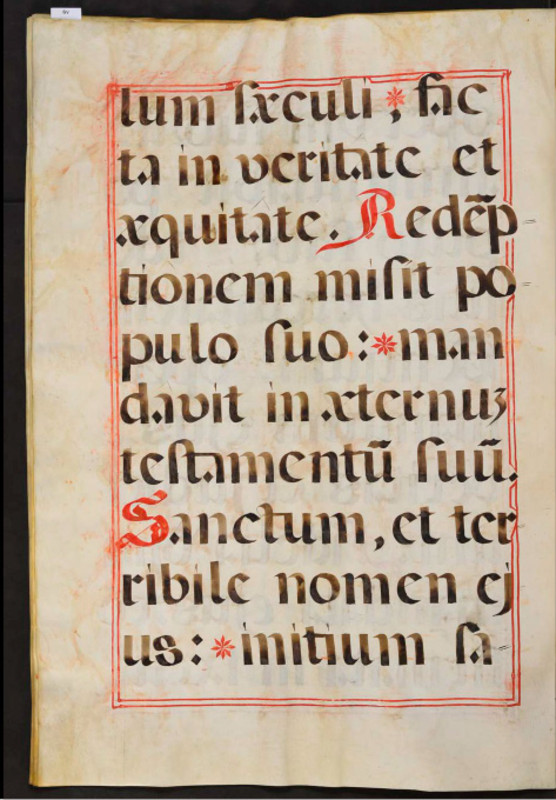 lum ſæculi * ; fac
ta in veritate et
æquitate. Redẽp=
tionem miſit po=
pulo ſuo: * man
davit in æternuȝ
teſtamentũ ſuũ.
Sanctum, et ter
ribile nomen ej
us: * initium ſa=